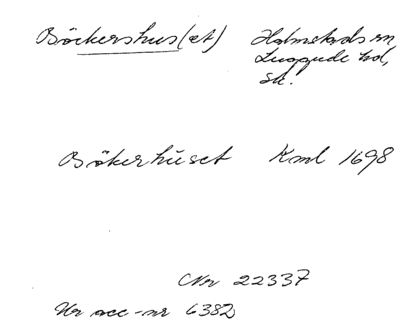 Böckershus(et) Holmstads sn
Luggude hd,
Sk.
Bökerhuset Kml 1698
Nr 22337
Ur acc-nr 6382